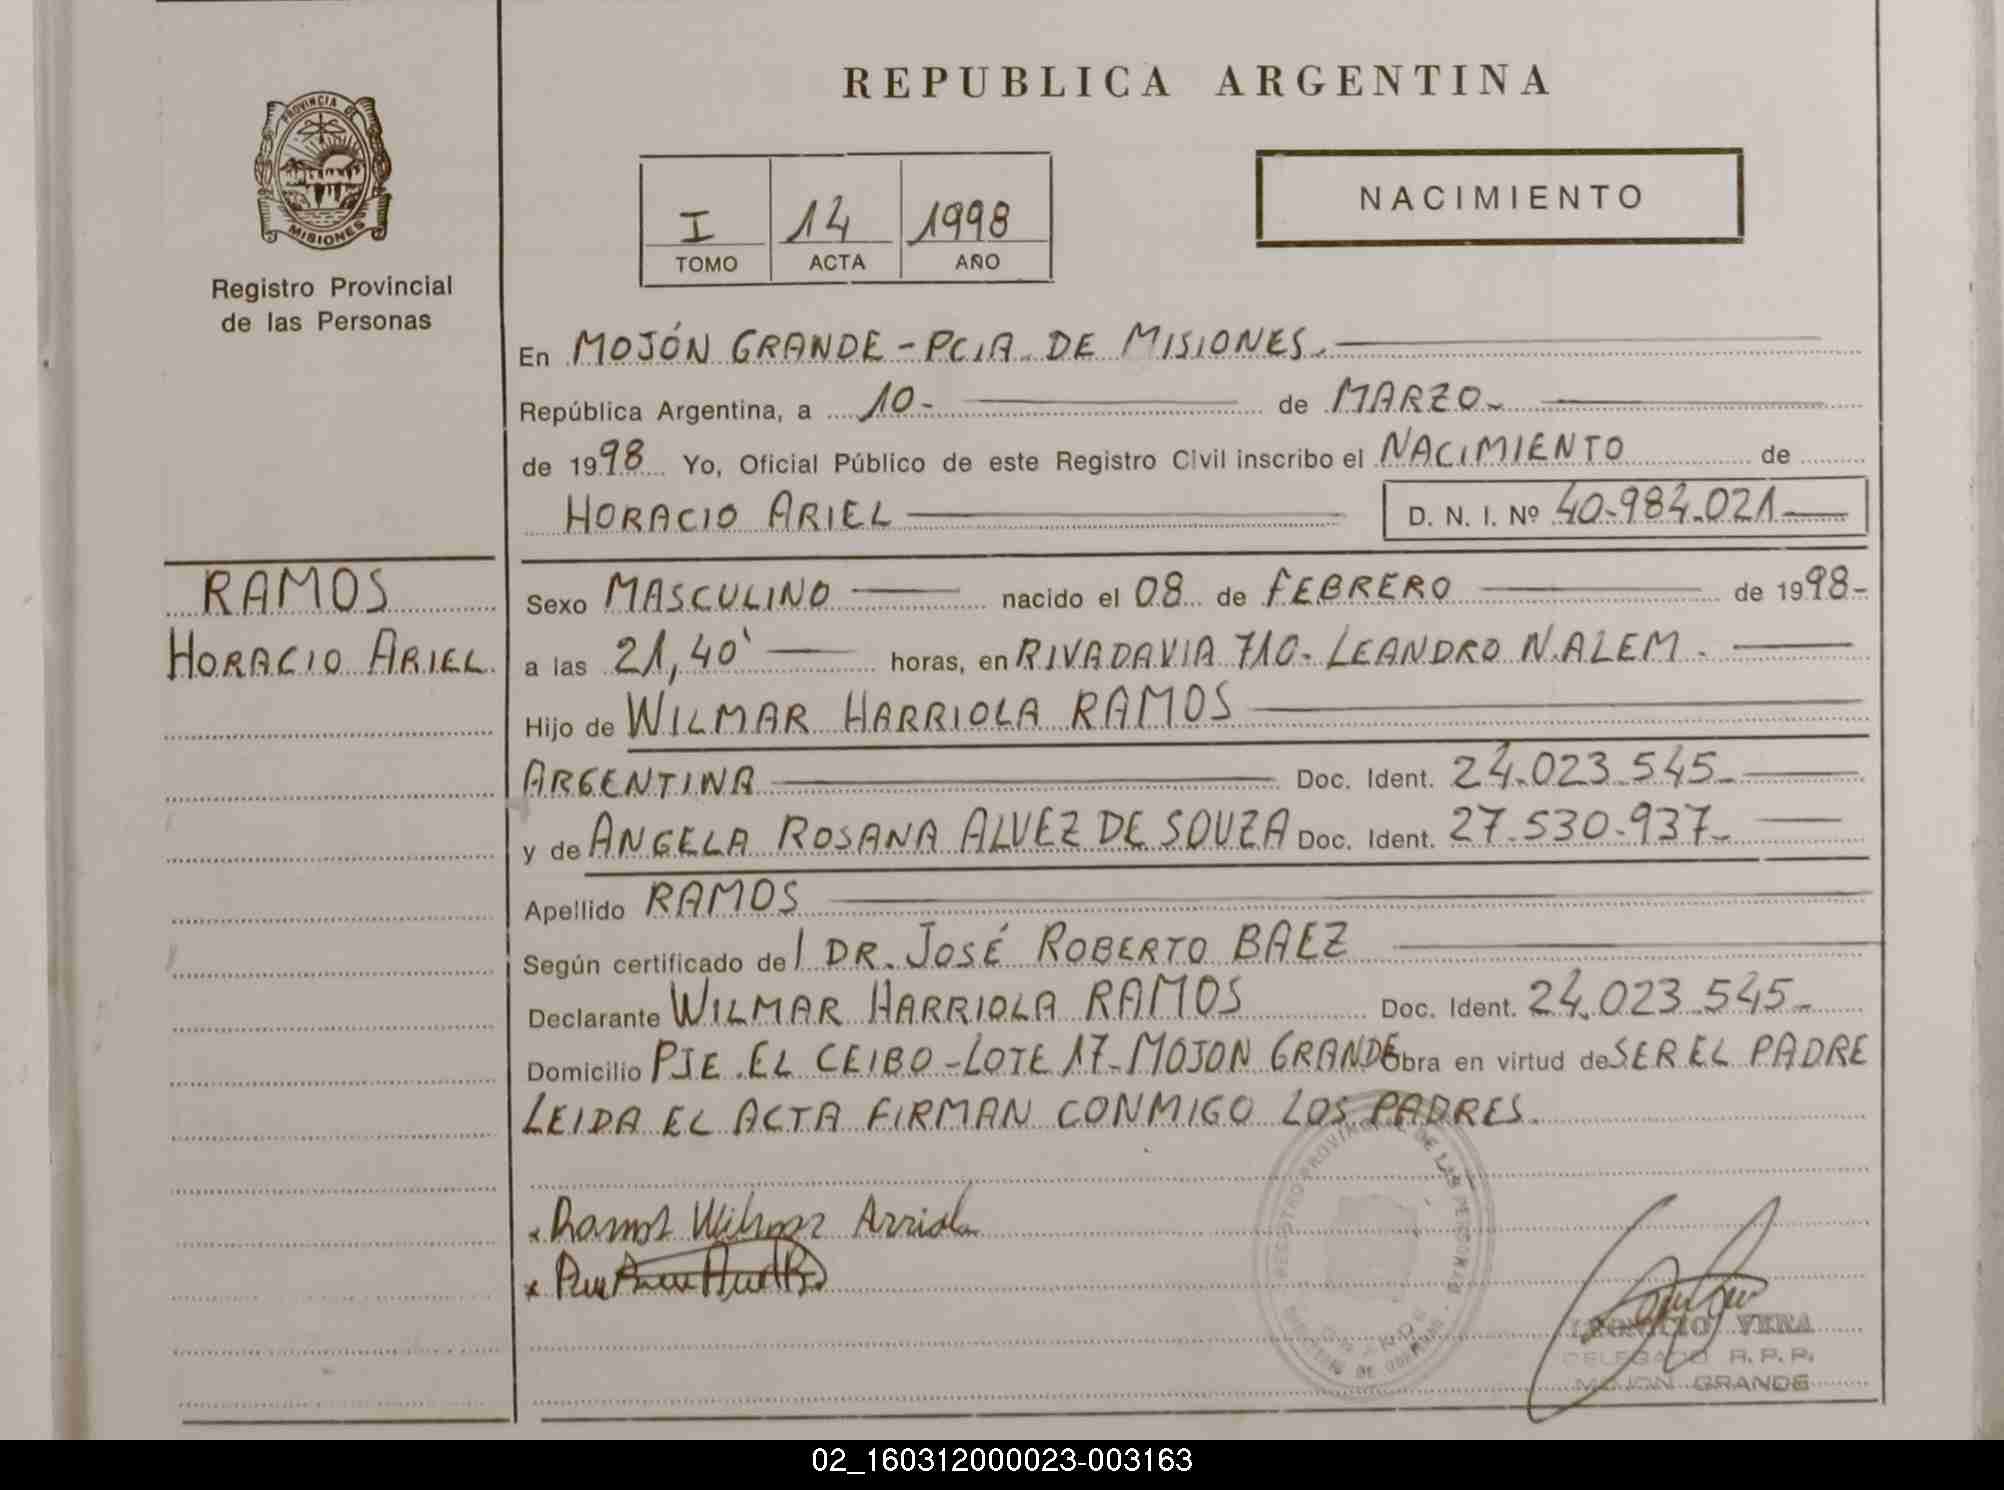 PROVINCIA DE
MISIONES
Registro Provincial
de las Personas
RAMOS
HORACIO ARIEL
REPUBLICA ARGENTINA
I 14 1998
TOMO ACTA AÑO
NACIMIENTO
En MOJÓN GRANDE - PCIA. DE MISIONES.
República Argentina, a 10- de MARZO-
de 1998 Yo, Oficial Público de este Registro Civil inscribo el NACIMIENTO de
HORACIO ARIEL D. N. I. Nº 40-984.021
Sexo MASCULINO nacido el 08 de FEBRERO de 1998-
a las 21,40' horas, en RIVADAVIA 710- LEANDRO N. ALEM.
Hijo de WILMAR HARRIOLA RAMOS
ARGENTINA Doc. Ident. 24-023.545-
y de ANGELA ROSANA ALVEZ DE SOUZA Doc. Ident. 27-530-937-
Apellido RAMOS
Según certificado del DR. JOSÉ ROBERTO BAEZ
Declarante WILMAR HARRIOLA RAMOS Doc. Ident. 24.023.545-
Domicilio PJE. EL CEIBO - LOTE 17 - MOJON GRANDE Obra en virtud de SER EL PADRE
LEIDA EL ACTA FIRMAN CONMIGO LOS PADRES.
Ramos Wilmar Arriola
REGISTRO PROVINCIAL DE LAS PERSONAS
VERA
DELEGADO R. P. P.
MOJON GRANDE
02_160312000023-003163